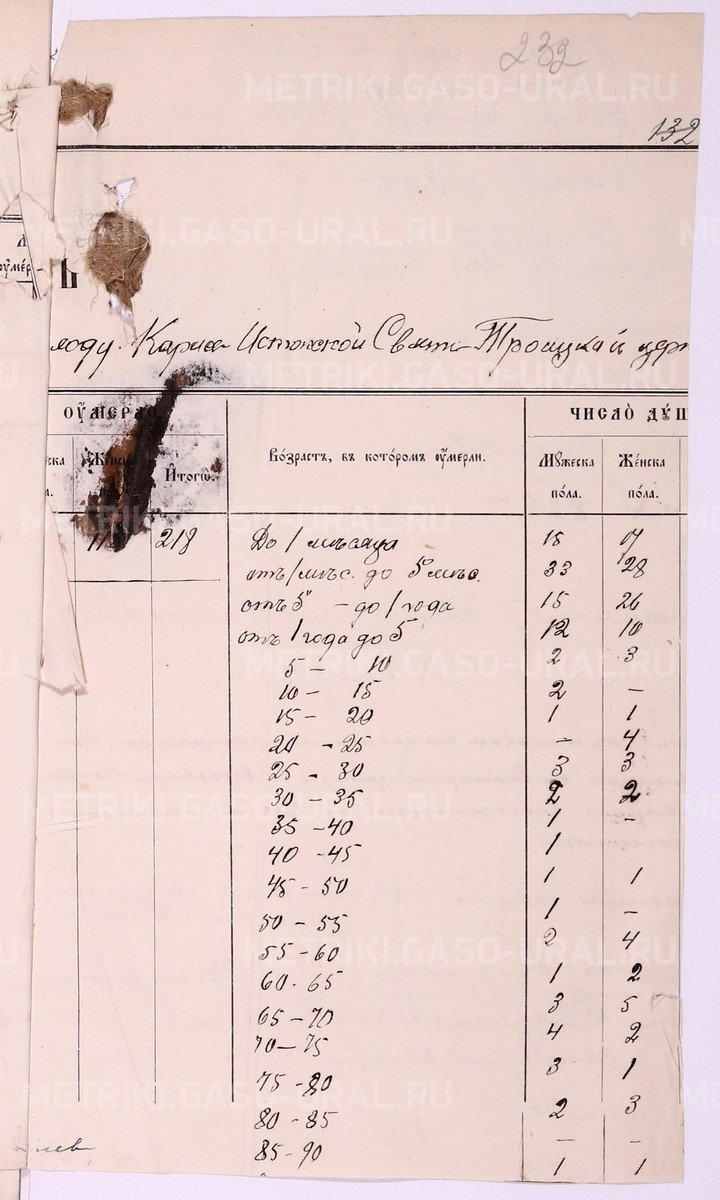 232
132
METRIKI.GASO-URAL.RU
Ъ
Карга Истокской Свято Троицкай церк
ОУМЕРЛО
ЧИСЛО ДУШ
Итого.
Во́зрастъ, въ кото́ромъ оумерли.
Мужеска по́ла.
Же́нска по́ла.
11 218
До 1 мѣсяца 18 17
отъ 1 мѣс. до 5 мѣс. 33 28
отъ 5 – до 1 года 15 26
отъ 1 года до 5 12 10
5 – 10 2 3
10 – 15 2 –
15 – 20 1 1
20 – 25 – 4
25 – 30 3 3
30 – 35 2 2
35 – 40 1 –
40 – 45 1
45 – 50 1 1
50 – 55 1 –
55 – 60 2 4
60 – 65 1 2
65 – 70 3 5
70 – 75 4 2
75 – 80 3 1
80 – 85 2 3
85 – 90 – –
1 1